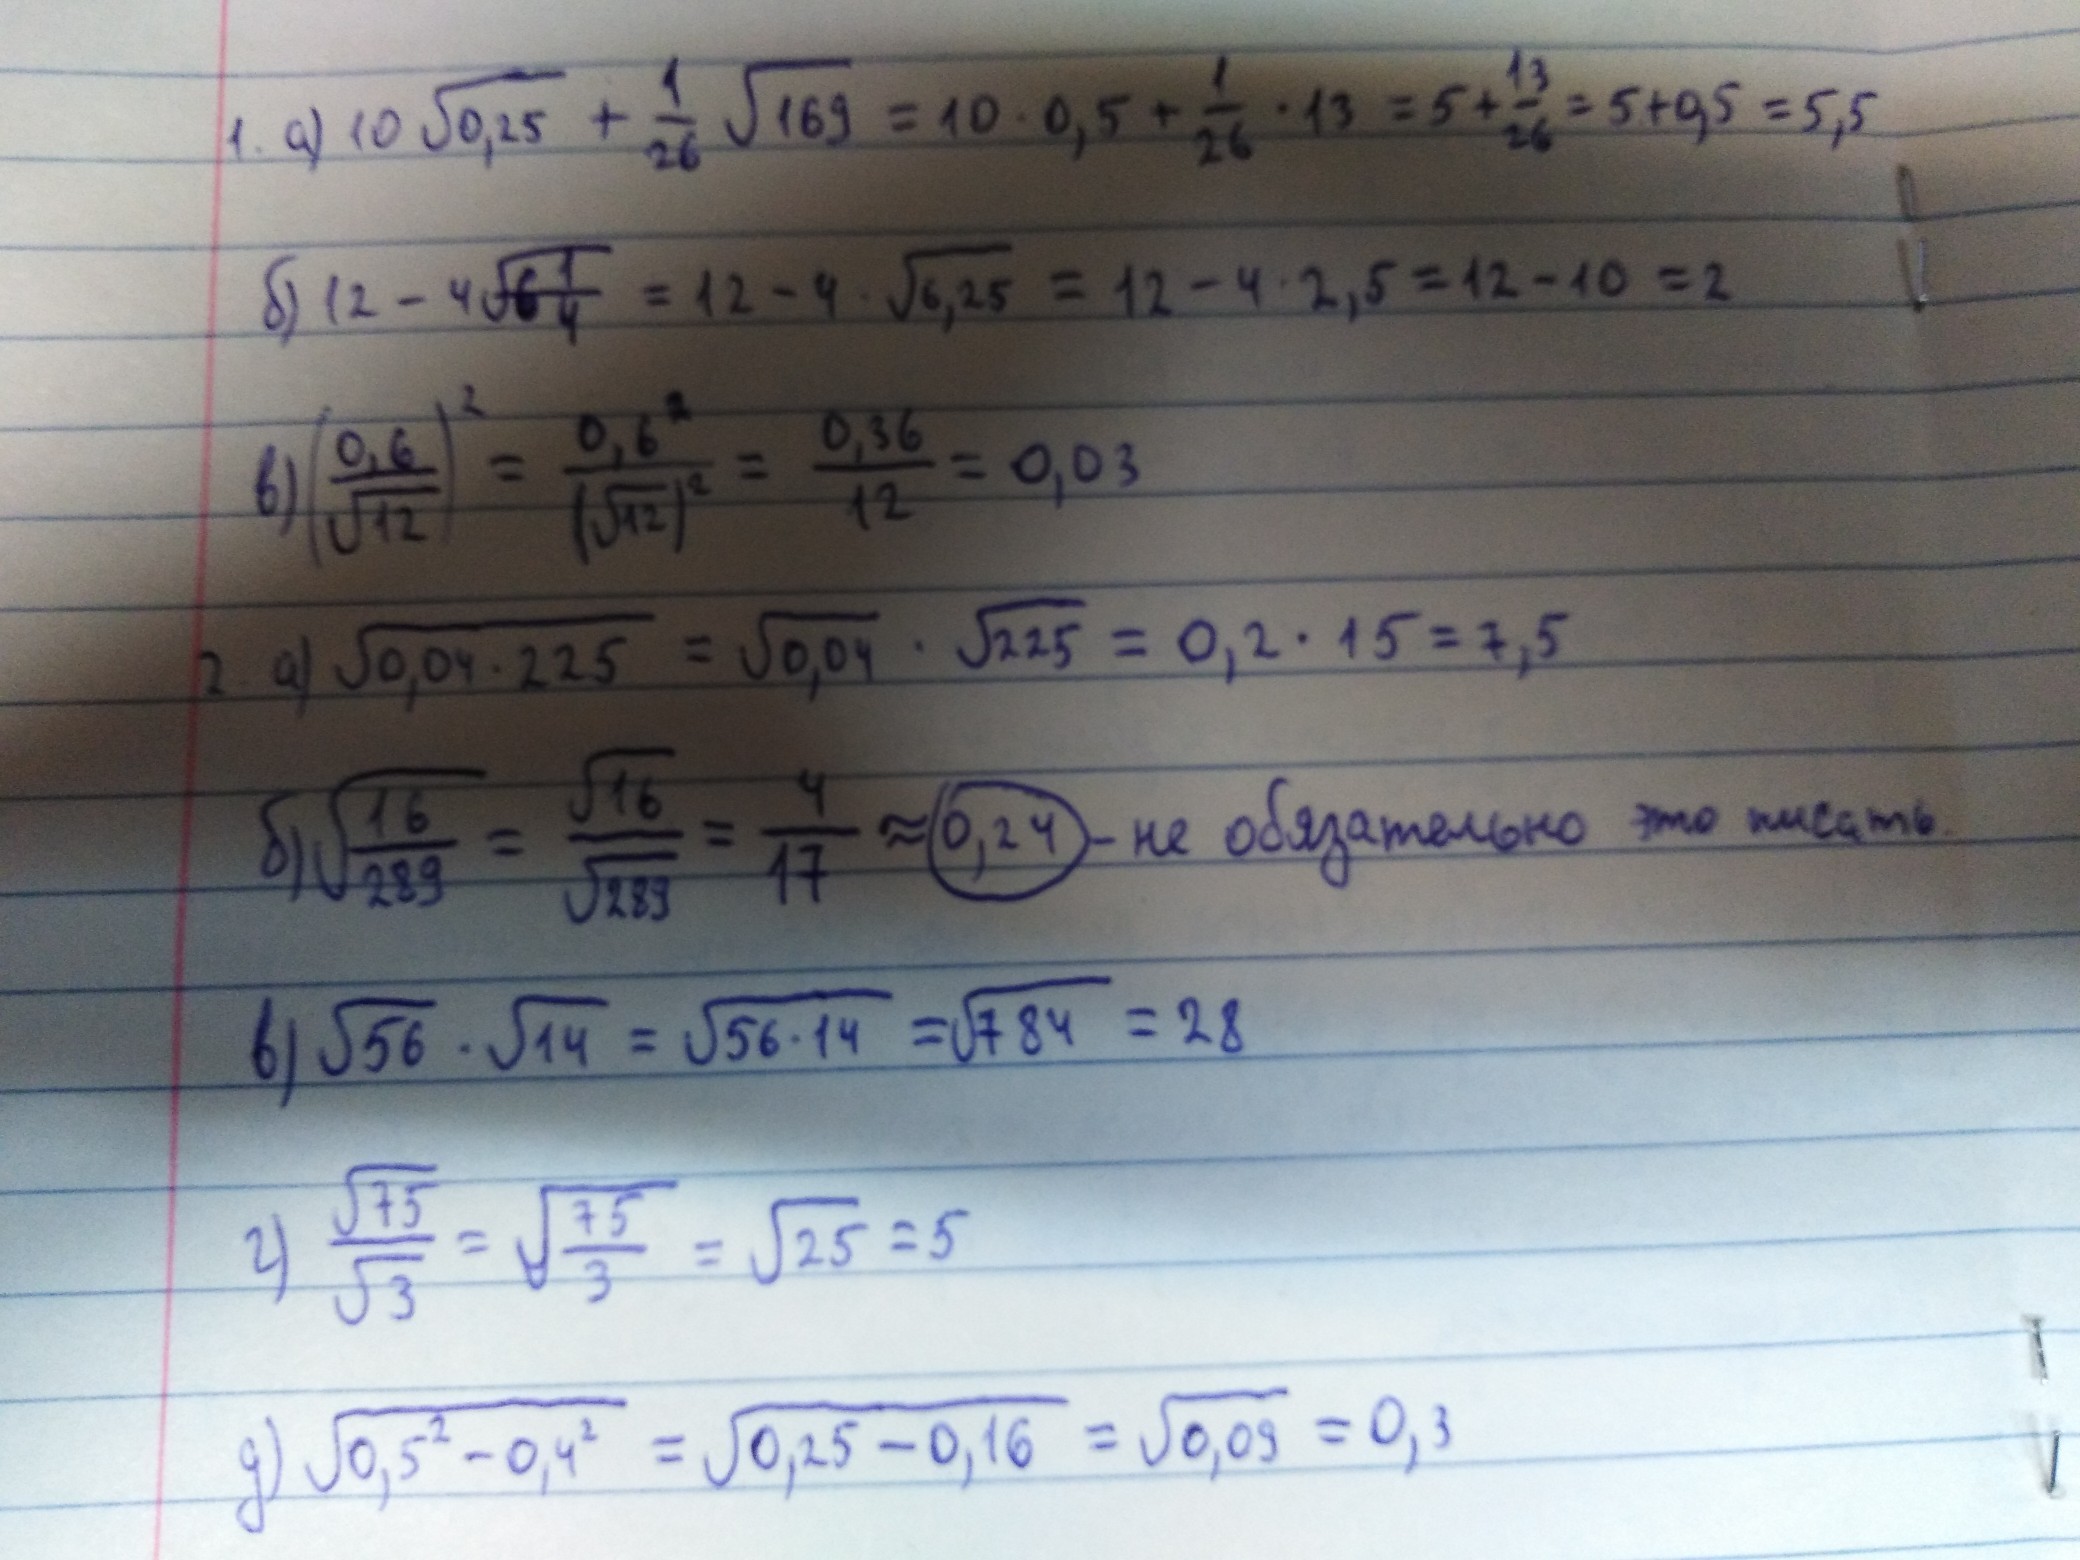 1. а) 10√0,25 + 1/26 √169 = 10 · 0,5 + 1/26 · 13 = 5 + 13/26 = 5+0,5 = 5,5
б) 12 – 4√6 1/4 = 12 – 4 · √6,25 = 12 – 4 · 2,5 = 12 – 10 = 2
в) (0,6/√12)² = 0,6²/(√12)² = 0,36/12 = 0,03
2. а) √0,04 · 225 = √0,04 · √225 = 0,2 · 15 = 7,5
б) √16/289 = √16/√289 = 4/17 ≈ 0,24 – не обязательно это писать.
в) √56 · √14 = √56 · 14 = √784 = 28
г) √75/√3 = √75/3 = √25 = 5
д) √0,5² – 0,4² = √0,25 – 0,16 = √0,09 = 0,3